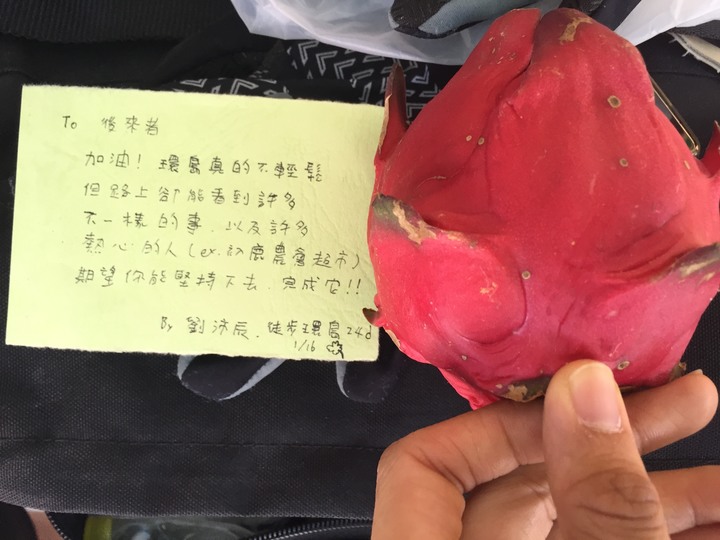 To 後來者
加油! 環島真的不輕鬆
但路上卻能看到許多
不一樣的事、以及許多
熱心的人 (ex. 初鹿農會超市)
期望你能堅持下去、完成它!!
By 劉沛辰、徒步環島24d
1/16